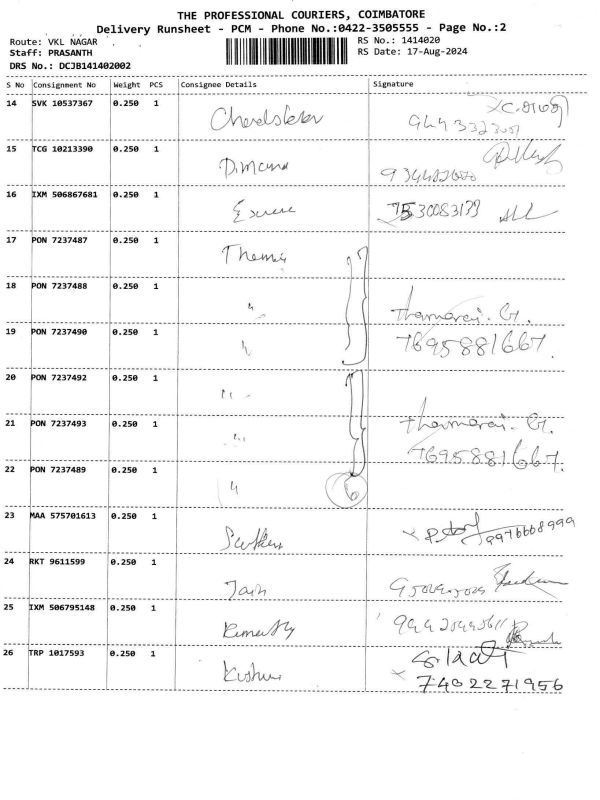 THE PROFESSIONAL COURIERS, COIMBATORE
Delivery Runsheet - PCM - Phone No.:0422-3505555 - Page No.:2
Route: VKL NAGAR
RS No.: 1414020
Staff: PRASANTH
RS Date: 17-Aug-2024
DRS No.: DCJB141402002
S No Consignment No Weight PCS Consignee Details Signature
14 SVK 10537367 0.250 1
15 TCG 10213390 0.250 1
16 IXM 506867681 0.250 1 7530083179
17 PON 7237487 0.250 1
18 PON 7237488 0.250 1 Thamarai. G.
19 PON 7237490 0.250 1 7695881667.
20 PON 7237492 0.250 1
21 PON 7237493 0.250 1 Thamarai. G.
7695881667.
22 PON 7237489 0.250 1 6
23 MAA 575701613 0.250 1 9976668999
24 RKT 9611599 0.250 1 Jain
25 IXM 506795148 0.250 1
26 TRP 1017593 0.250 1 Kishore
7402271956